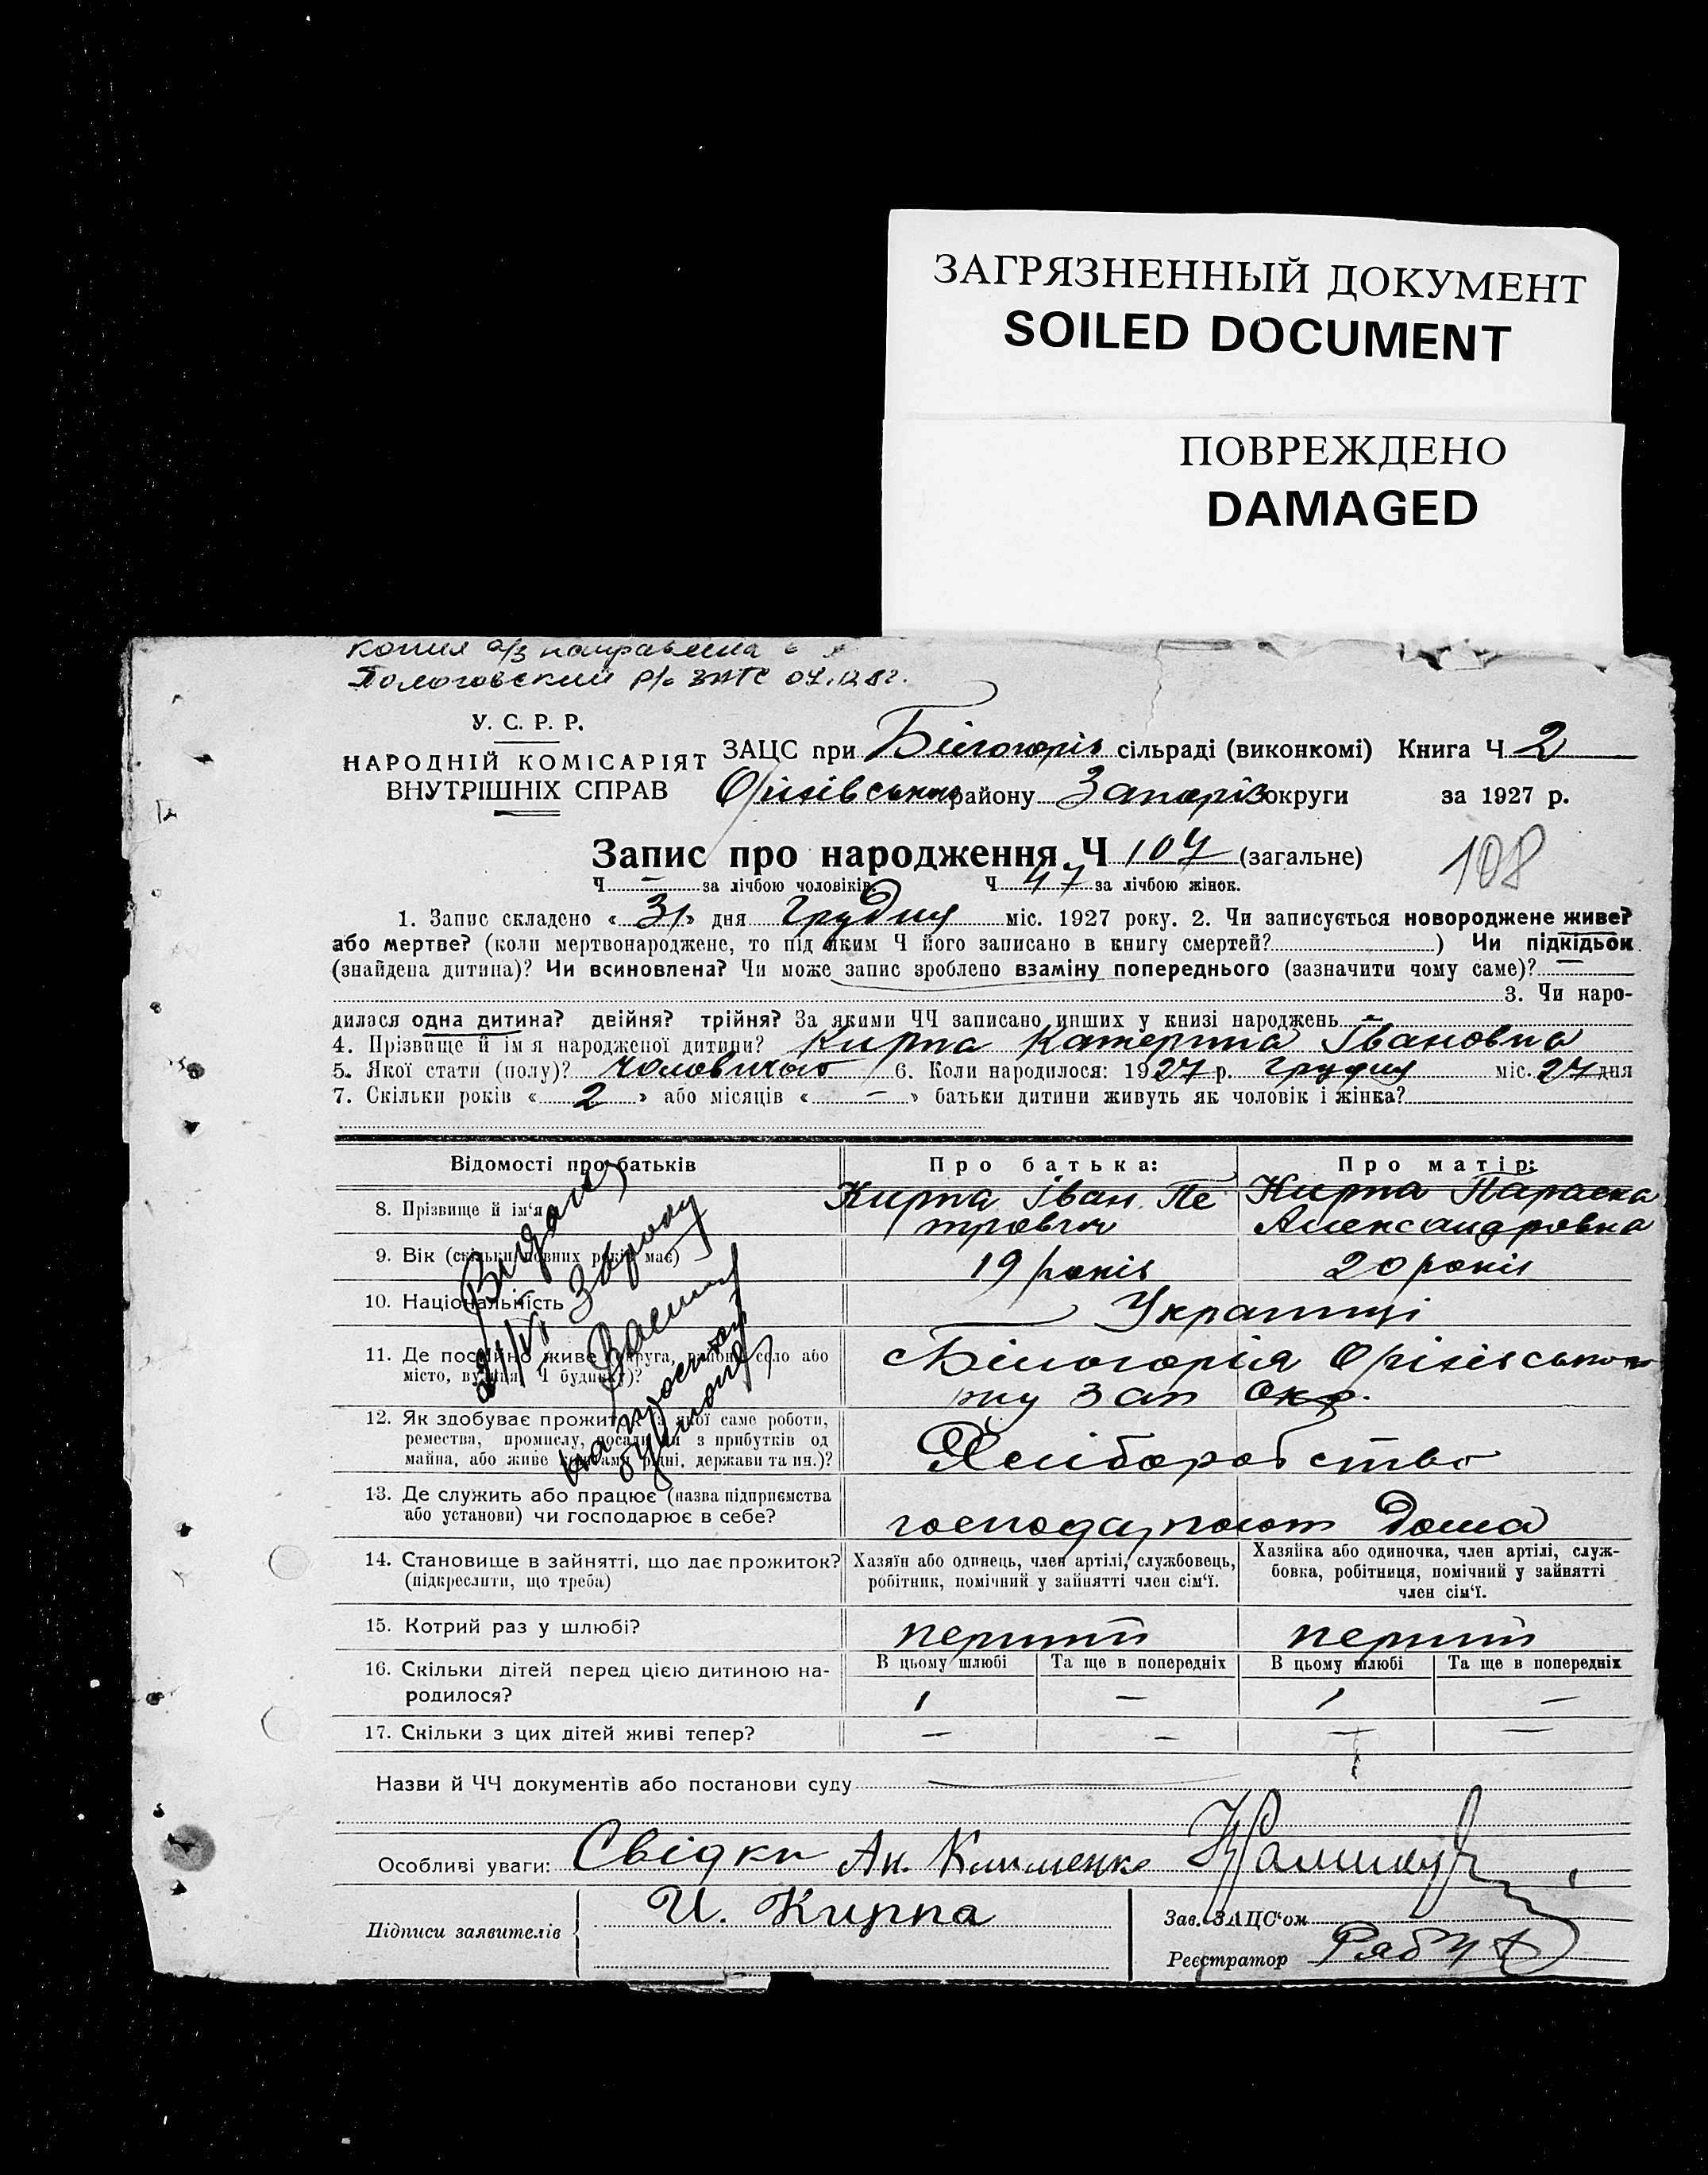 ЗАГРЯЗНЕННЫЙ ДОКУМЕНТ
SOILED DOCUMENT
ПОВРЕЖДЕНО
DAMAGED
копия а/з направлена в
Пологовский р/о ЗАГС 04.12.82г.
У. С. Р. Р.
НАРОДНІЙ КОМІСАРІЯТ
ВНУТРІШНІХ СПРАВ
ЗАЦС при Білогорів сільраді (виконкомі) Книга Ч 2
Оріхівського району Запоріз округи за 1927 р.
Запис про народження Ч 104 (загальне)
108
Ч — за лічбою чоловіків. Ч 47 за лічбою жінок.
1. Запис складено « 31 » дня грудня міс. 1927 року. 2. Чи записується новороджене живе?
або мертве? (коли мертвонароджене, то під яким Ч його записано в книгу смертей? ) Чи підкідьок
(знайдена дитина)? Чи всиновлена? Чи може запис зроблено взаміну попереднього (зазначити чому саме)? —
3. Чи наро-
дилася одна дитина? двійня? трійня? За якими ЧЧ записано инших у книзі народжень —
4. Прізвище й ім я народженої дитини? Кирпа Катерина Івановна
5. Якої стати (полу)? чоловічого 6. Коли народилося: 1927 р. грудня міс. 27 дня
7. Скільки років « 2 » або місяців « — » батьки дитини живуть як чоловік і жінка?
Відомості про батьків Про батька: Про матір:
8. Прізвище й ім'я Кирпа Іван Пе Кирпа Параска
трович Александровна
9. Вік (скільки повних років має) 19 років 20 років
10. Національність Українці
11. Де постійно живе (округа, район, село або Білогорія Оріхівського
місто, вулиця, Ч будинку)? рну Зап Окр.
12. Як здобуває прожиток (з якої саме роботи,
ремества, промислу, посади чи з прибутків од
майна, або живе коштами рідні, держави та ин.)? Хліборобство
13. Де служить або працює (назва підприємства
або установи) чи господарює в себе? господарюют дома
14. Становище в зайнятті, що дає прожиток?
(підкреслити, що треба)
Хазяїн або одинець, член артілі, службовець,
робітник, помічний у зайнятті член сім'ї.
Хазяйка або одиночка, член артілі, служ-
бовка, робітниця, помічний у зайнятті
член сім'ї.
15. Котрий раз у шлюбі? перший перший
16. Скільки дітей перед цією дитиною на-
родилося?
В цьому шлюбі Та ще в попередніх В цьому шлюбі Та ще в попередніх
1 — 1 —
17. Скільки з цих дітей живі тепер? — — — —
Назви й ЧЧ документів або постанови суду
Особливі уваги: Свідки Ан. Клименко
Підписи заявителів И. Кирпа
Зав. ЗАЦС'ом
Реєстратор